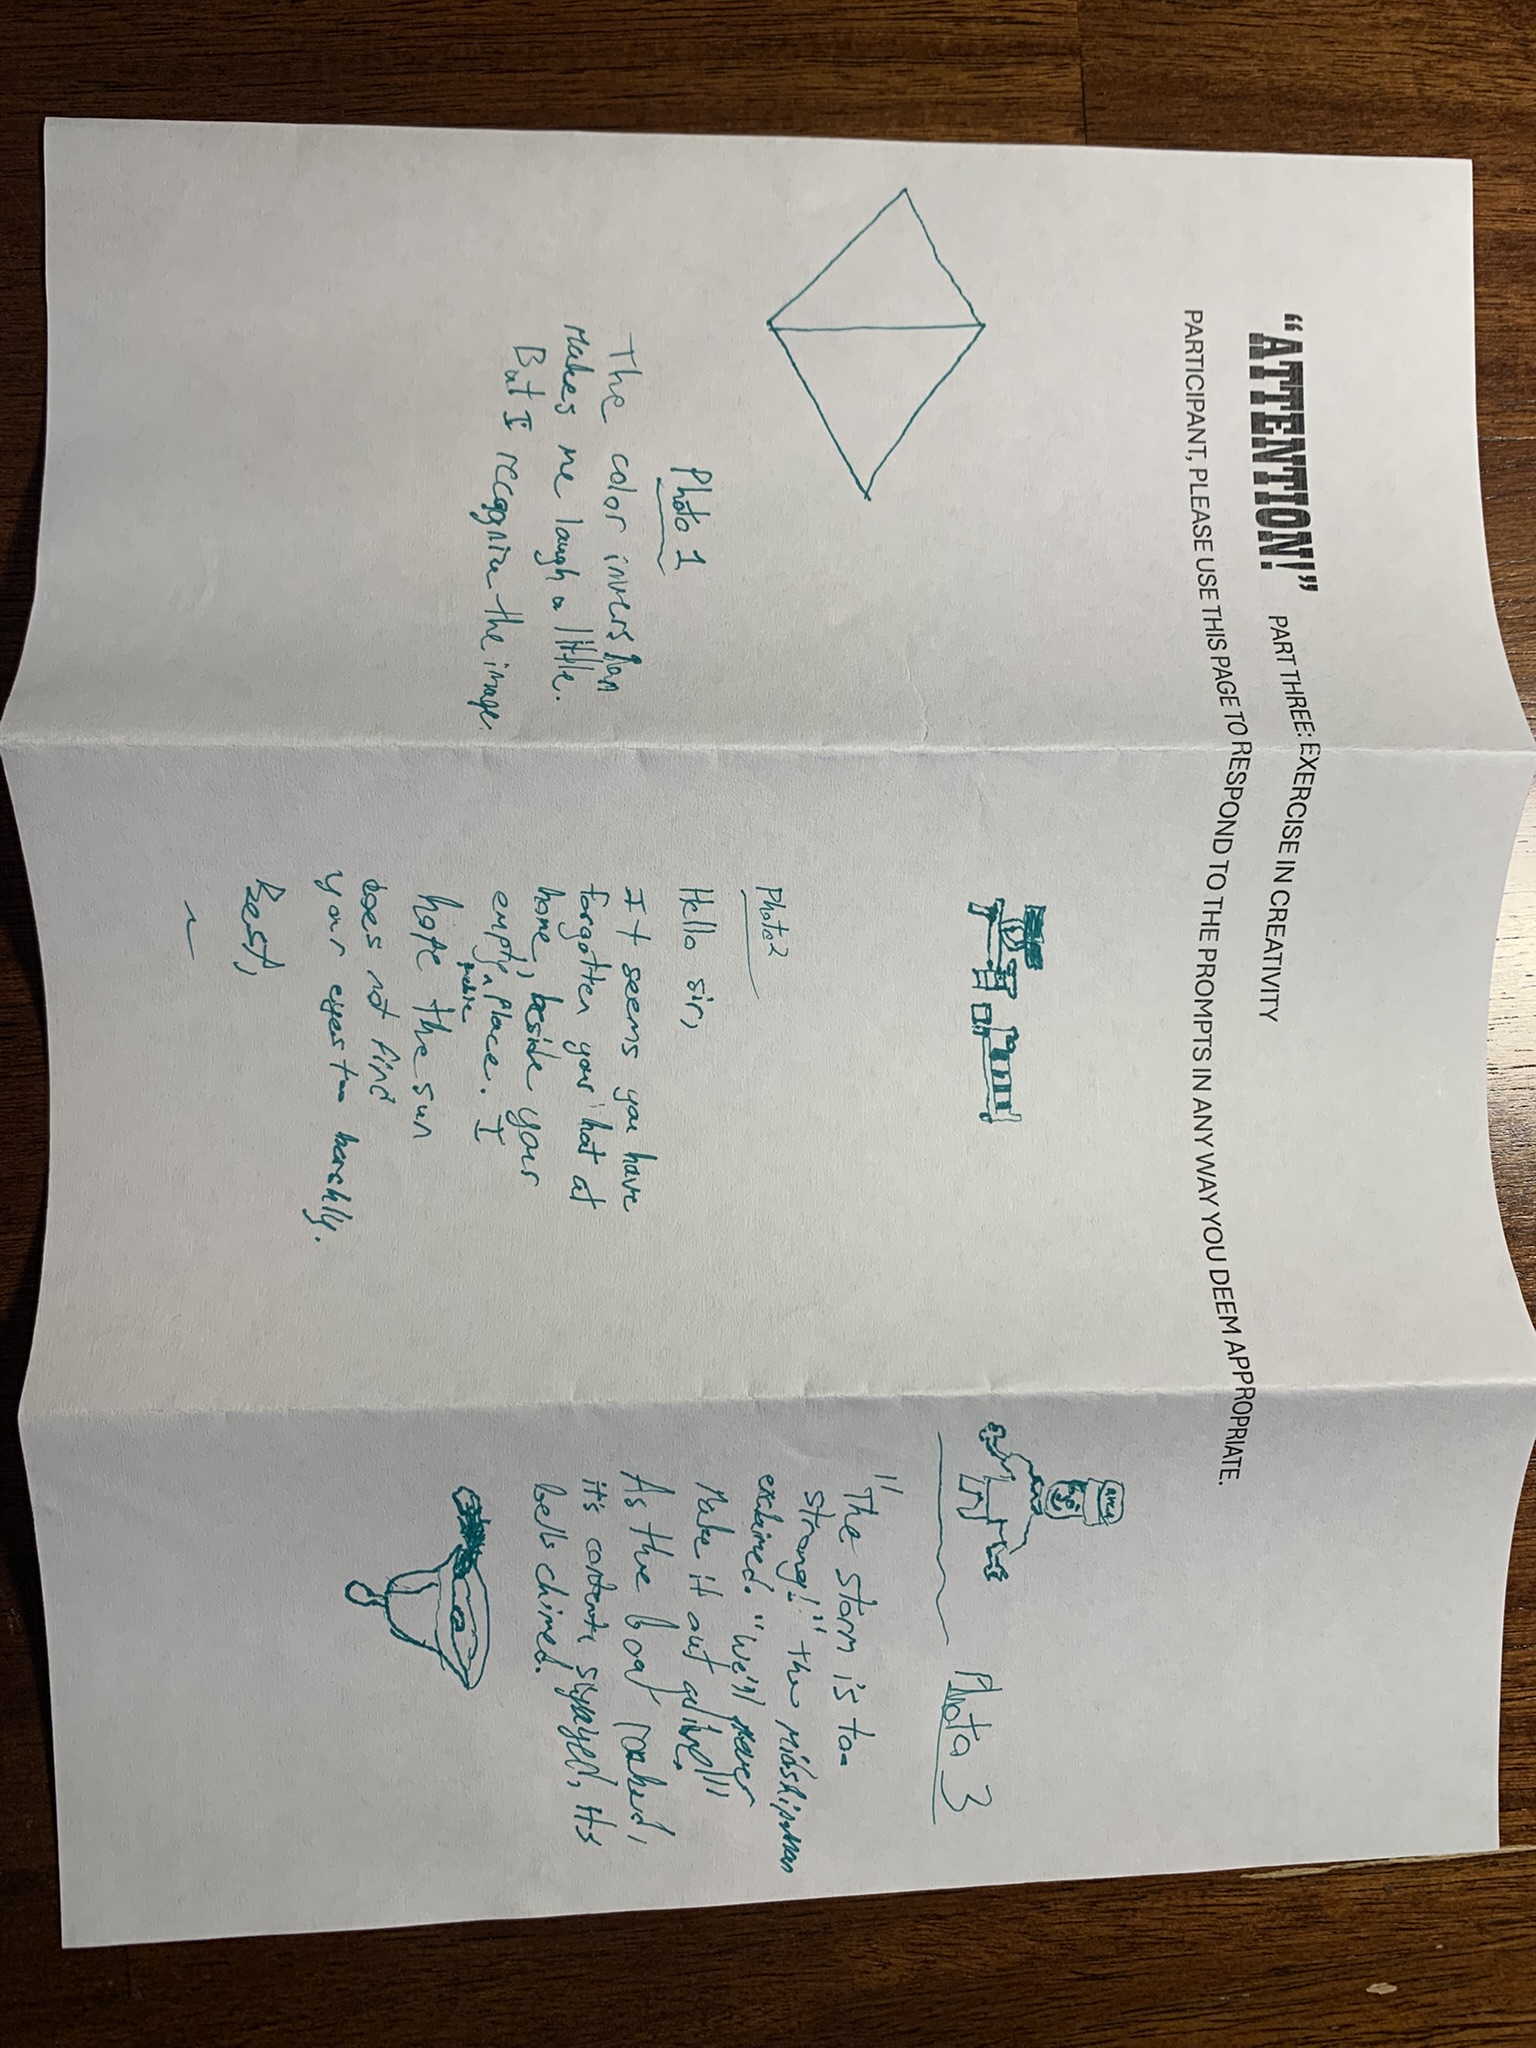 “ATTENTION!” PART THREE: EXERCISE IN CREATIVITY
PARTICIPANT, PLEASE USE THIS PAGE TO RESPOND TO THE PROMPTS IN ANY WAY YOU DEEM APPROPRIATE.
Photo 1
The color inversion
makes me laugh a little.
But I recognize the image.
Photo 2
Hello sir,
It seems you have
forgotten your hat at
home, beside your
empty place. I
hope the sun
does not find
your eyes too harshly.
Best,
~
Photo 3
"The storm is too
strong!" the midshipman
exclaimed. "We'll never
make it out alive!"
As the boat rocked,
it's contents swayed, its
bells chimed.